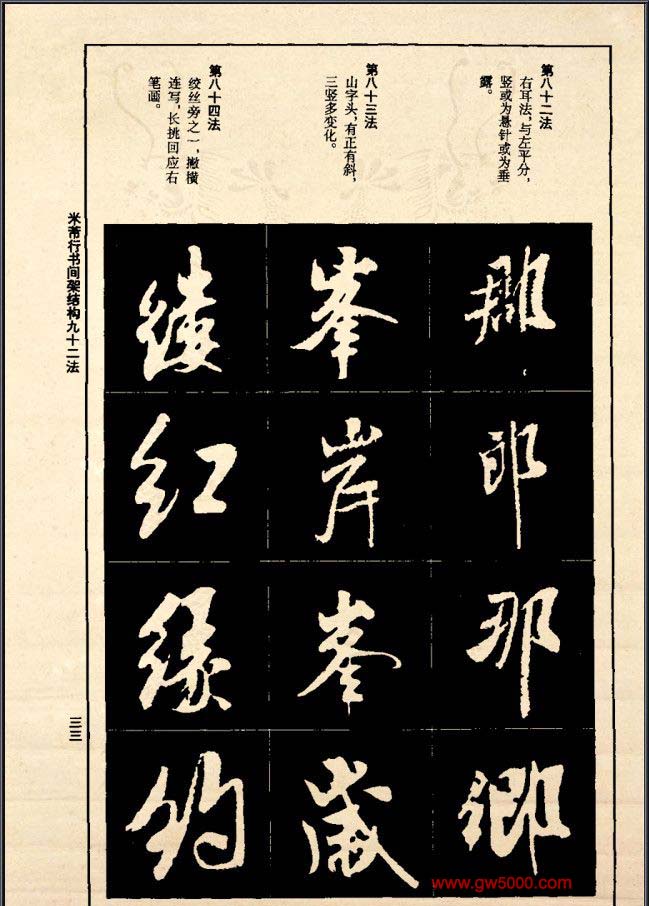 第八十二法
右耳法，与左平分，
竖或为悬针或为垂
露。
第八十三法
山字头，有正有斜，
三竖多变化。
第八十四法
绞丝旁之一，撇横
连写，长挑回应右
笔画。
郎
那
峯
岸
峯
歲
紅
緣
約
米芾行书间架结构九十二法
三三
www.gw5000.com